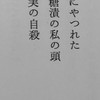 にやつれた
糖漬の私の頭
実の自殺